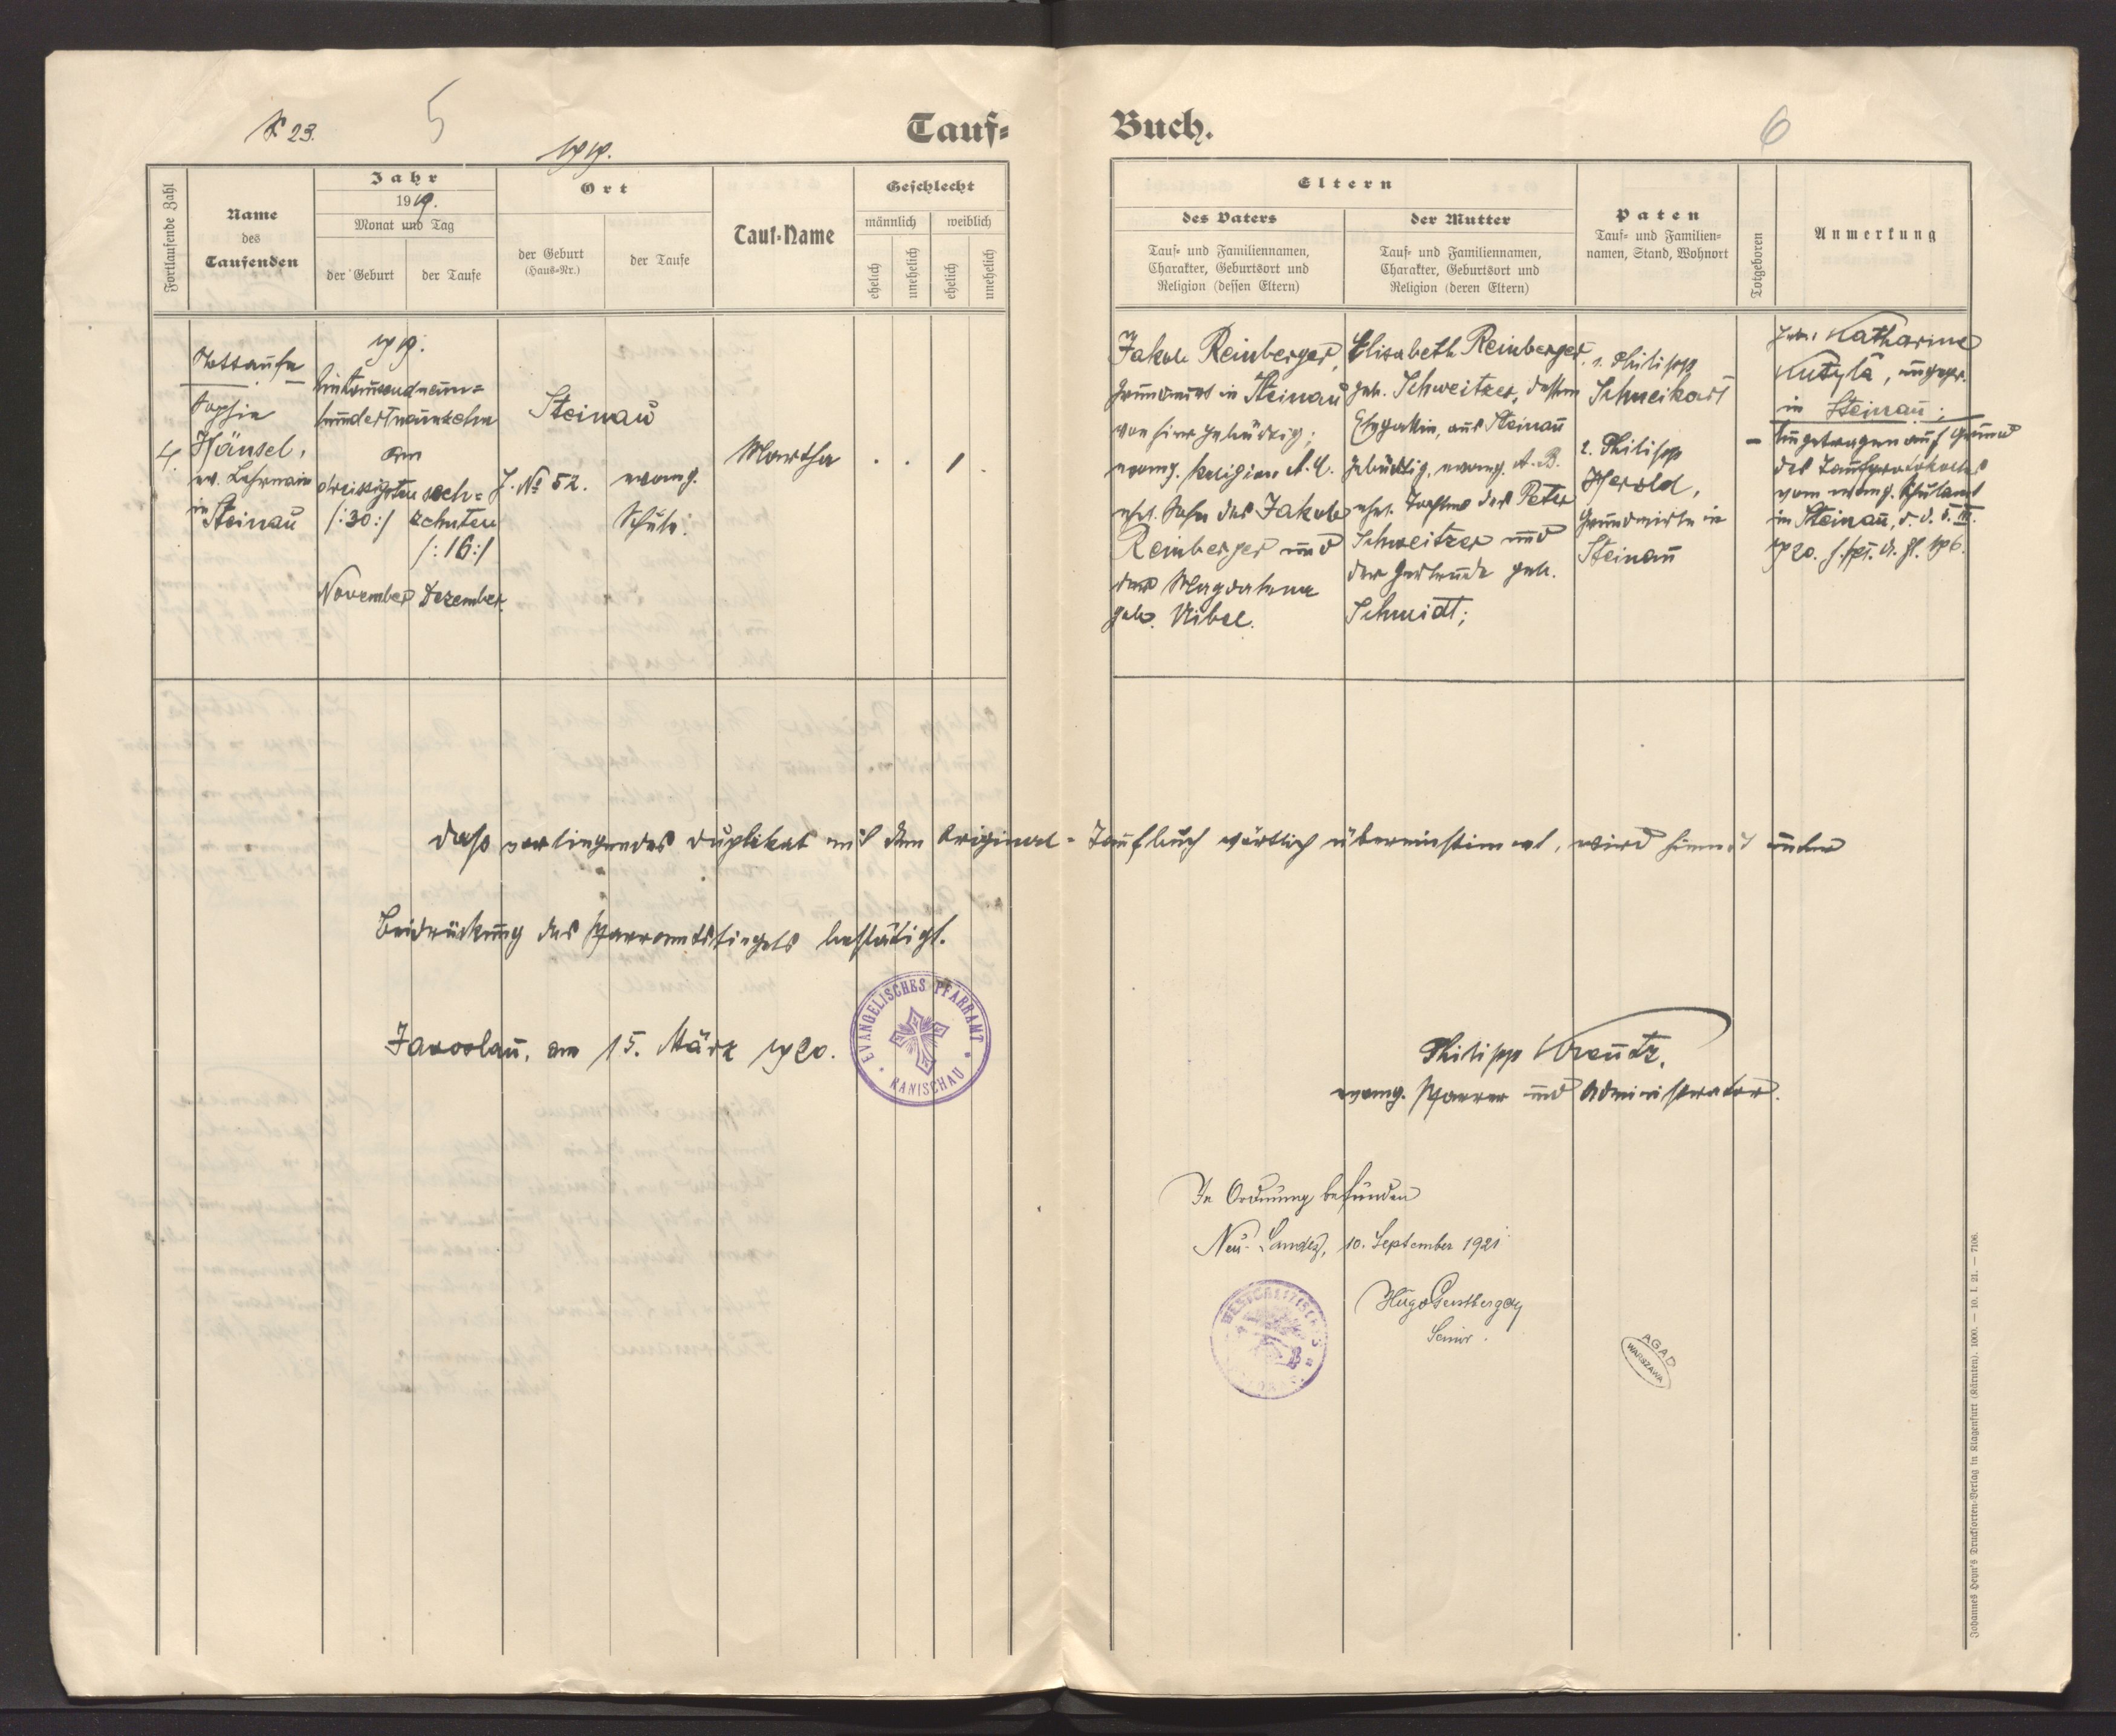 № 23.
5
1919.
Tauf=
Fortlaufende Zahl
Name
des
Taufenden
Jahr
1919.
Monat und Tag
der Geburt
der Taufe
Ort
der Geburt
(Haus=Nr.)
der Taufe
Tauf=Name
Geschlecht
männlich
weiblich
ehelich
unehelich
ehelich
unehelich
4.
Nottaufe
Sophie
Hänsel,
ev. Lehrerin
in Steinau
1919.
Eintausendneun=
hundertneunzehn
am
dreißigsten
/:30:/
November
sech=
zehnten
/:16:/
Dezember
Steinau
№ 52.
evang.
Schule.
Martha
. . / .
Buch.
6
Eltern
des Vaters
Tauf= und Familiennamen,
Charakter, Geburtsort und
Religion (dessen Eltern)
der Mutter
Tauf= und Familiennamen,
Charakter, Geburtsort und
Religion (deren Eltern)
Paten
Tauf= und Familien=
namen, Stand, Wohnort
Totgeboren
Anmerkung
Jakob Reinberger,
Grundwirt in Steinau
von hier gebürtig;
evang. Religion A. C.
ehel. Sohn des Jakob
Reinberger und
der Magdalena
geb. Nibel.
Elisabeth Reinberger
geb. Schweitzer, dessen
Ehegattin, aus Steinau
gebürtig, evang. A. B.
ehel. Tochter des Peter
Schweitzer und
der Gertrude geb.
Schmidt;
1. Philipp
Schweikart
2. Philipp
Herold,
Grundwirte in
Steinau
–
Katharine
Kutyla, ungepr.
in Steinau;
Eingetragen auf Grund
des Taufprotokolles
vom evang. Schulamt
in Steinau, d. d. 5. III.
1920.
Daß vorliegendes Duplikat mit dem Original = Taufbuch wörtlich übereinstimmt, wird hiemit unter
Beidrückung des Pfarramtssiegels bestätigt.
Jaroslau, am 15. März 1920.
EVANGELISCHES PFARRAMT
RANISCHAU
Philipp Kreutz,
evang. Pfarrer und Administrator.
In Ordnung befunden
Neu-Sandez, 10. September 1921
Hugo
Senior.
AGAD
WARSZAWA
Johannes Heyn's Drucksorten=Verlag in Klagenfurt (Kärnten). 1000. — 10. I. 21. — 7106.